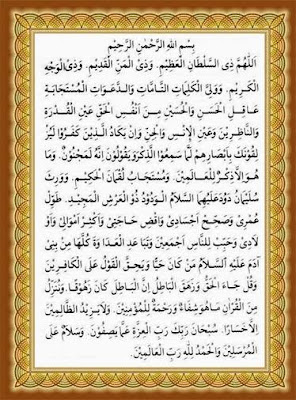 بِسْمِ اللهِ الرَّحْمٰنِ الرَّحِيْمِ
اَللّٰهُمَّ ذِى السُّلْطَانِ الْعَظِيْمِ. وَذِى الْمَنِّ الْقَدِيْمِ. وَذِى الْوَجْهِ
الْكَرِيْمِ. وَوَلِيِّ الْكَلِمَاتِ التَّآمَّاتِ وَالدَّعَوَاتِ الْمُسْتَجَابَةِ
عَاقِلِ الْحَسَنِ وَالْحُسَيْنِ مِنْ اَنْفُسِ الْحَقِّ عَيْنِ الْقُدْرَةِ
وَالنَّاظِرِيْنَ وَعَيْنِ الْاِنْسِ وَالْجِنِّ وَاِنْ يَكَادُ الَّذِيْنَ كَفَرُوْا لَيُزْ
لِقُوْنَكَ بِاَبْصَارِهِمْ لَمَّا سَمِعُوا الذِّكْرَ وَيَقُوْلُوْنَ اِنَّهُ لَمَجْنُوْنٌ. وَمَا
هُوَ اِلَّا ذِكْرٌ لِلْعَالَمِيْنَ. وَمُسْتَجَابُ لُقْمَانَ الْحَكِيْمِ. وَوَرِثَ
سُلَيْمَانُ دَاوُدَ عَلَيْهِمَا السَّلَامُ الْوَدُوْدُ ذُو الْعَرْشِ الْمَجِيْدِ. طَوِّلْ
عُمْرِىْ وَصَحِّحْ اَجْسَادِىْ وَاقْضِ حَاجَتِىْ وَاَكْثِرْ اَمْوَالِىْ وَاَوْ
لَادِىْ وَحَبِّبْ لِلنَّاسِ اَجْمَعِيْنَ. وَتَبَاعَدِ الْعَدَاوَةَ كُلَّهَا مِنْ بَنِىْ
آدَمَ عَلَيْهِ السَّلَامُ مَنْ كَانَ حَيًّا وَيَحِقَّ الْقَوْلُ عَلَى الْكَافِرِيْنَ
وَقُلْ جَاءَ الْحَقُّ وَزَهَقَ الْبَاطِلُ اِنَّ الْبَاطِلَ كَانَ زَهُوْقًا. وَنُنَزِّلُ
مِنَ الْقُرْآنِ مَا هُوَ شِفَاءٌ وَرَحْمَةٌ لِلْمُؤْمِنِيْنَ. وَلَا يَزِيْدُ الظَّالِمِيْنَ
اِلَّا خَسَارًا. سُبْحَانَ رَبِّكَ رَبِّ الْعِزَّةِ عَمَّا يَصِفُوْنَ. وَسَلَامٌ عَلَى
الْمُرْسَلِيْنَ وَالْحَمْدُ لِلّٰهِ رَبِّ الْعَالَمِيْنَ.